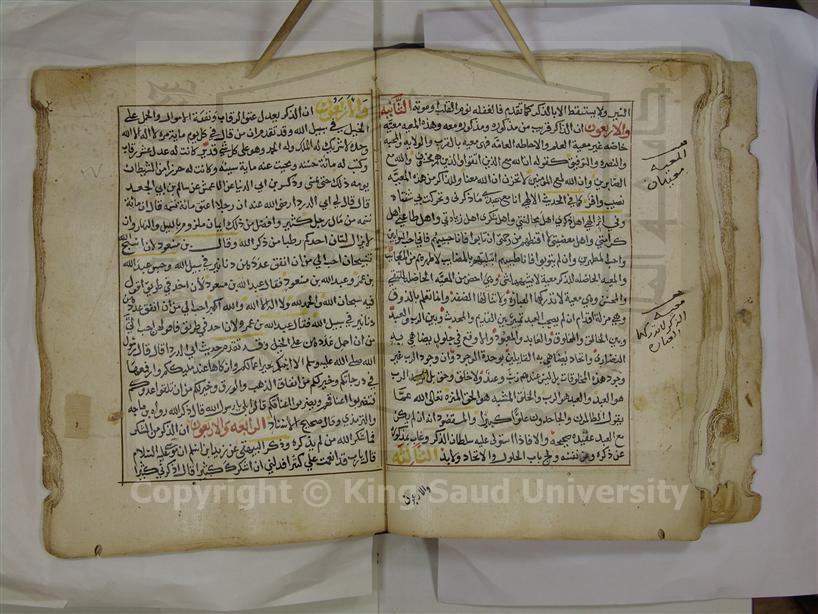 السير ولا يستيقظ الا بالذكر كما تقدم فالغفلة نوم القلب او موته الثانية
والاربعون ان الذاكر قريب من مذكوره ومذكوره معه وهذه المعية معية
خاصة غير معية العلم والاحاطة العامة فهي معية بالقرب والولاية والمحبة
والنصرة والتوفيق كقوله ان الله مع الذين اتقوا والذين هم محسنون والله مع
الصابرين وان الله لمع المحسنين لا تحزن ان الله معنا وللذاكر من هذه المعية
نصيب وافر كما في الحديث الالهي انا مع عبدي ما ذكرني وتحركت بي شفتاه
وفي اثر الهي اهل ذكري اهل مجالستي واهل شكري اهل زيادتي واهل طاعتي اهل
كرامتي واهل معصيتي لا اقنطهم من رحمتي ان تابوا فانا حبيبهم فاني احب التوابين
واحب المتطهرين وان لم يتوبوا فانا طبيبهم ابتليهم بالمصائب لاطهرهم من المعايب
والمعية الحاصلة للذاكر معية لا يشبهها شيء وهي اخص من المعية الحاصلة للمتقي
والمحسن وهي معية لا تدركها العبارة ولا تنالها الصفة وانما تعلم بالذوق
وهي مزلة اقدام ان لم يصحب العبد تمييز بين القديم والمحدث وبين الرب والعبد
وبين الخالق والمخلوق والعابد والمعبود والا وقع في حلول يضاهي به
النصارى او اتحاد يضاهي به القائلين بوحدة الوجود وان وجود الرب عين
وجود هذه المخلوقات بل ليس عندهم رب وعبد ولا خلق وحق بل الرب
هو العبد والعبد هو الرب والخلق المشبه هو الحق المنزه تعالى الله عما
يقول الظالمون والجاحدون علوا كبيرا والمقصود انه ان لم يكن
مع العبد عقيدة صحيحة والا فاذا استولى عليه سلطان الذكر وغاب بمذكوره
عن ذكره وعن نفسه ولج باب الحلول والاتحاد ولا بد الثالثة
والاربعون
المعية
معيتان
معية
الذكر لا تدركها
العبارة
والاربعون ان الذكر يعدل عتق الرقاب ونفقة الاموال والحمل على
الخيل في سبيل الله وقد تقدم ان من قال في كل يوم مائة مرة لا اله الا الله
وحده لا شريك له له الملك وله الحمد وهو على كل شيء قدير كانت له عدل عشر رقاب
وكتبت له مائة حسنة ومحيت عنه مائة سيئة وكانت له حرزا من الشيطان
يومه ذلك حتى يمسي وذكر ابن ابي الدنيا عن الاعمش عن سالم بن ابي الجعد
قال قيل لابي الدرداء رضي الله عنه ان رجلا اعتق مائة نسمة قال ان مائة
نسمة من مال رجل كثير وافضل من ذلك ايمان ملزوم بالليل والنهار وان
لا يزال لسان احدكم رطبا من ذكر الله وقال بن مسعود لان اسبح الله
تسبيحات احب الي من ان انفق عددهن دنانير في سبيل الله وجلس عبد الله
بن عمرو وعبد الله بن مسعود فقال عبد الله بن مسعود لان اخذ في طريق اقول
فيه سبحان الله والحمد لله ولا اله الا الله والله اكبر احب الي من ان انفق عددهن
دنانير في سبيل الله فقال عبد الله بن عمرو لان اخذ في طريق فاقولهن احب الي
من ان احمل عددهن على الخيل وقد تقدم حديث ابي الدرداء قال قال رسول
الله صلى الله عليه وسلم الا انبئكم بخير اعمالكم وازكاها عند مليككم وارفعها
في درجاتكم وخير لكم من انفاق الذهب والورق وخير لكم من ان تلقوا عدوكم
فتضربوا اعناقهم ويضربوا اعناقكم قالوا بلى يا رسول الله قال ذكر الله رواه بن ماجه
والترمذي وقال صحيح الاسناد الرابعة والاربعون ان الذكر من الشكر
فما شكر الله من لم يذكره وذكر البيهقي عن زيد بن اسلم ان موسى عليه السلام
قال يا رب قد انعمت علي كثيرا فدلني ان اشكرك كثيرا قال اذكرني كثيرا
Copyright © King Saud University